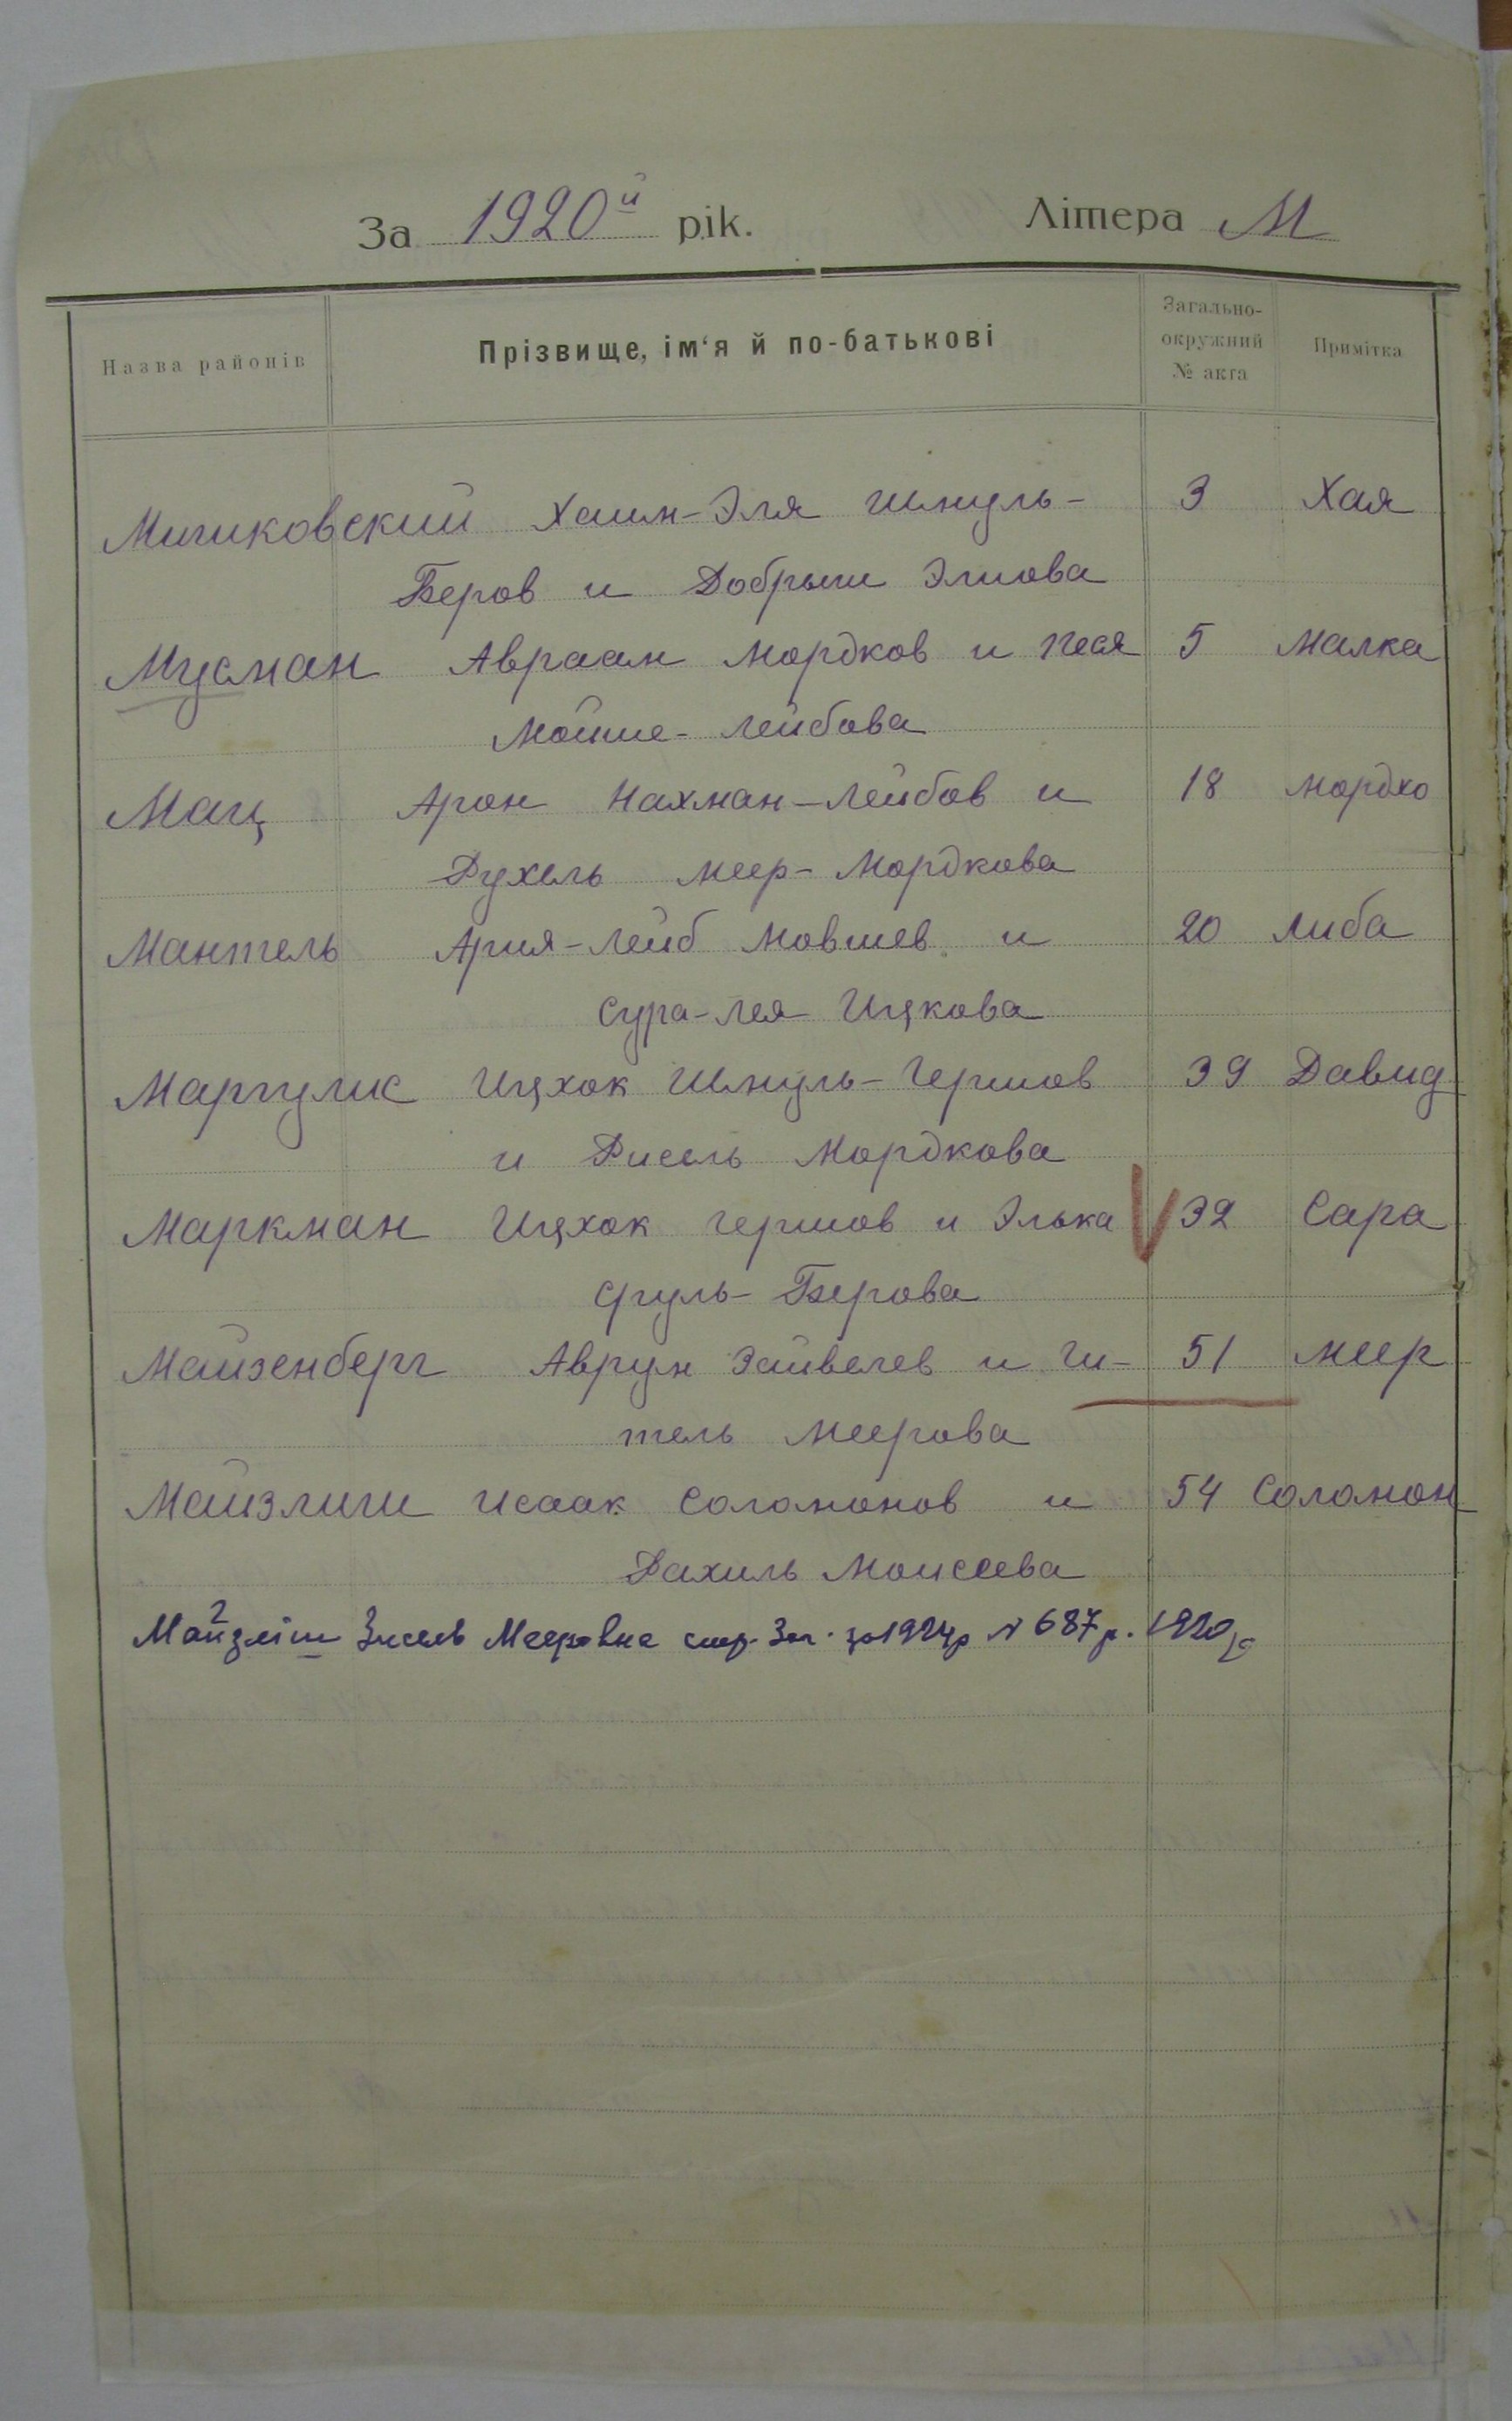 За 1920й рік. Літера М
Назва районів Прізвище, ім‘я й по-батькові Загально-окружний № акта Примітка
Мичиковский Хаим-Эля Шмуль- 3 Хая
Беров и Добрыш Элиова
Мусман Авраам Мордков и Песя 5 Малка
Мойше-Лейбова
Мац Арон Нахман-Лейбов и 18 Мордхо
Рухель Меер-Мордкова
Мантель Ария-Лейб Мовшев и 20 Либа
Сура-Лея Ицкова
Маргулис Ицхок Шмуль-Гершов 39 Давид
и Рисель Мордкова
Маркман Ицхок Гершов и Элька 32 Сара
Сруль-Берова
Майзенберг Аврум Зайвелев и Ги- 51 Меер
тель Меерова
Майзлиш Исаак Соломонов и 54 Соломон
Рахиль Моисеева
Майзліш Меэровна за 1924р № 687 р. 1920